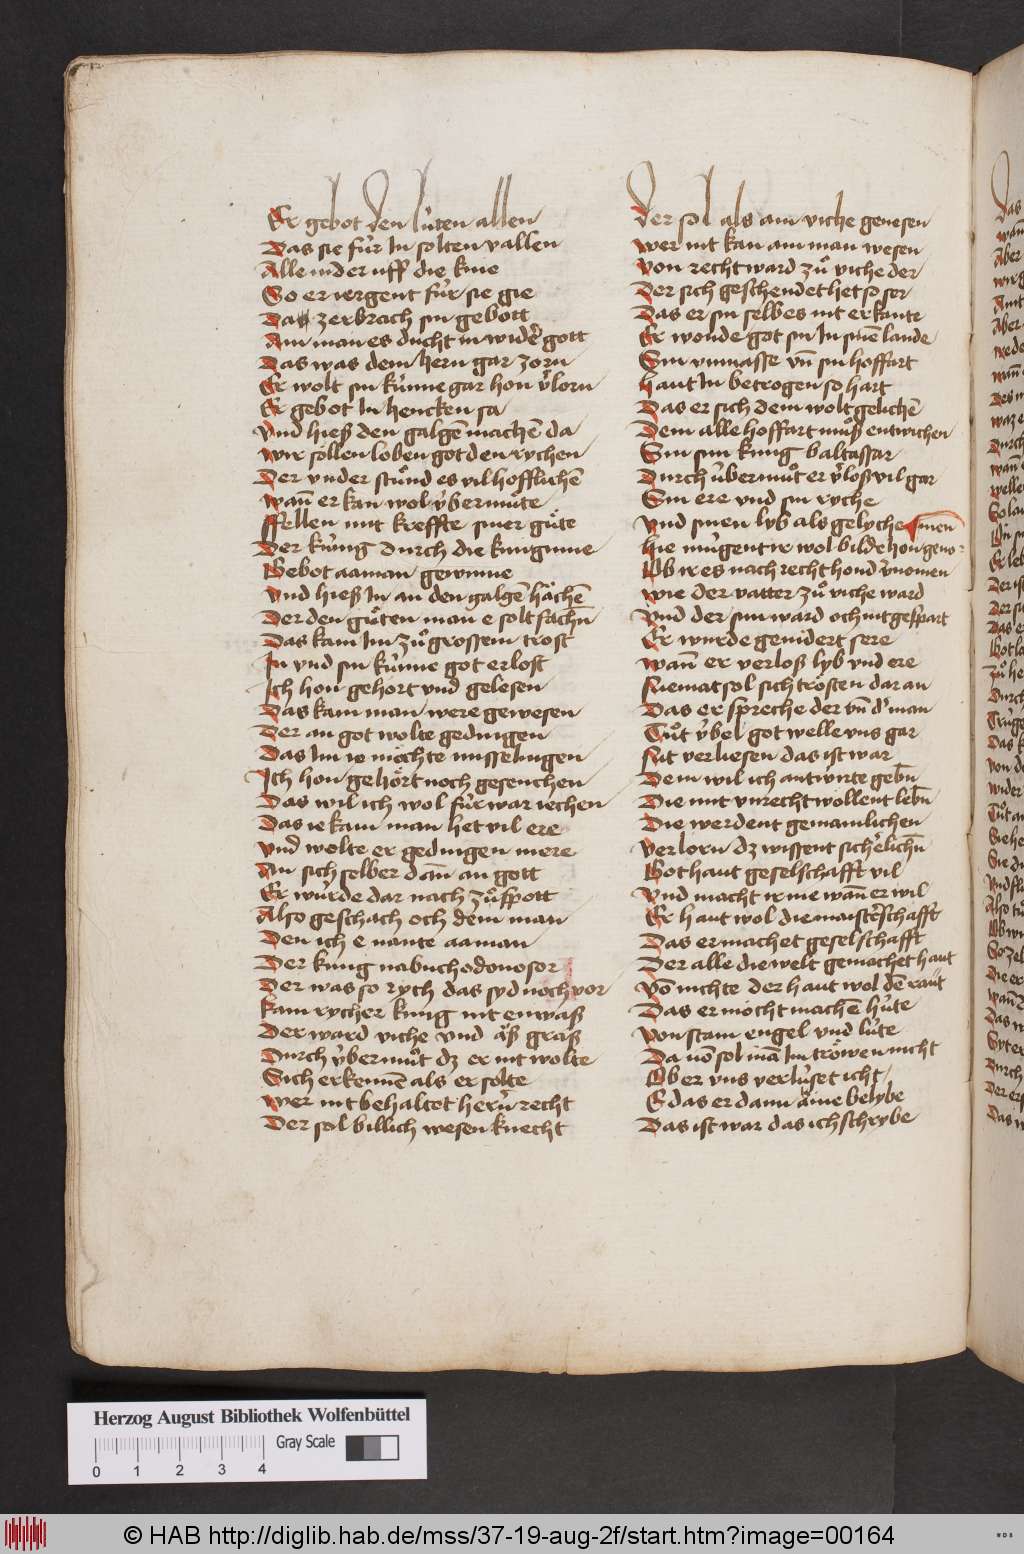 Er gebot den lùten allen
Das sie fùr In solten vallen
Alle nider uff die knie
So er iergent fùr sie gie
Das zerbrach sin gebott
Am man es ducht in wider gott
Das was dem hern gar zorn
Er wolt sin kùnne gar hon v̾lorn
Er gebot In hencken sa
Vnd hieß den galgē machē da
Wir söllen loben got den rychen
Der vnder stůnd es vil hofflichē
Wañ er kan wol ẏbermůte
Ffellen mit kreffte siner gůte
Der kùng durch die kunginne
Gebot aaman gewinne
Vnd hieß In an den galgē hāchē
Der den gůten man e solt fachn̄
Das kam Im zů grossem trost
In vnd sin kùnne got erlost
Ich hon gehort vnd gelesen
Das kam man were gewesen
Der an got wolte gedingen
Das Im ie möchte misselingen
Ich hon gehört noch gesenchen
Das wil ich wol fùr war iechen
Das ie kam man het vil ere
Vnd wolte er gedingen mere
An sich selber dañ an gott
Er wùrde dar nach zů spott
Also geschach och dem man
Den ich e nante aaman
Der kùng nabuchodonosor
Der was so rych das syd noch vor
Kam rycher kùng nit enwaß
Der ward viche vnd äß graß
Durch ẏbermůt dz er nit wolte
Sich erkennē als er solte
Wer nit behaltet herñ recht
Der sol billich wesen knecht
Der sol als am viche genesen
Wer nit kan am man wesen
Von recht ward zů viche der
Der sich geschendet het so ser
Das er sin selbes nit erkante
Er wonde got sin In sinē lande
Sin vnmasse vñ sin hoffart
Haut In betrogen so hart
Das er sich dem wolt gelichē
Dem alle hoffart můß entwichen
Sin sun kùng baltassar
Durch ùbermůt er v̾loß vil gar
Sin ere vnd sin ryche
Vnd sinen lyb als gelyche
Hie mùgent ir wol bilde hon geno-
men
Ob ir es nach recht hond v̾nomen
Wie der vatter zů viche ward
Vnd der sun ward och nit gespart
Er wurde genidert sere
Wañ er verloß lyb vnd ere
Niemat sol sich trösten dar an
Das er spreche der vñ d̾ man
Tůt ẏbel got welle vns gar
Nit verliesen das ist war
Dem wil ich antwirte gebn̄
Die mit vnrecht wollent lebn̄
Die werdent gemainlichen
Verlorn dz wissent sicherlichn̄
Got haut geselschafft vil
Vnd macht ir me wañ er wil
Er haut wol die maisterschafft
Das er machet geselschafft
Der alle die welt gemachet haut
Võ nichte der haut wol dē raut
Das er mocht machē hùte
Von stain engel vnd lùte
Da võ sol mā Im tröwen nicht
Ober vns verlùset icht
E das er dann äine belybe
Das ist war das ich schrybe
Herzog August Bibliothek Wolfenbüttel
Gray Scale
0 1 2 3 4
© HAB http://diglib.hab.de/mss/37-19-aug-2f/start.htm?image=00164